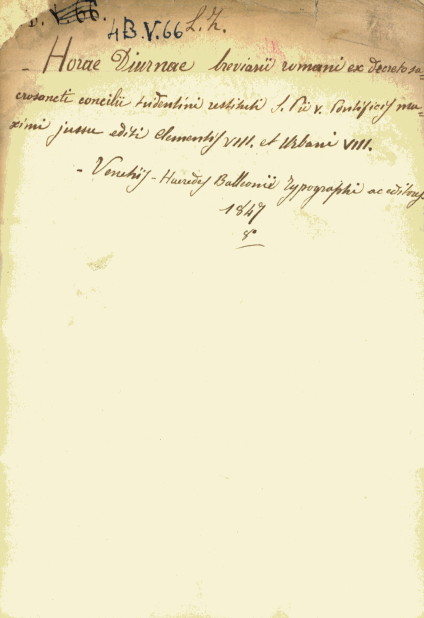 4B.V.66 L.Z.
- Horae Diurnae breviarii romani ex decreto sa-
crosancti concilii tridentini restituti S. Pii V. Pontificis ma-
ximi jussu editi Clementis VIII. et Urbani VIII.
- Venetiis - Haeredes Balleonii Typographi ac editores
1847
8°